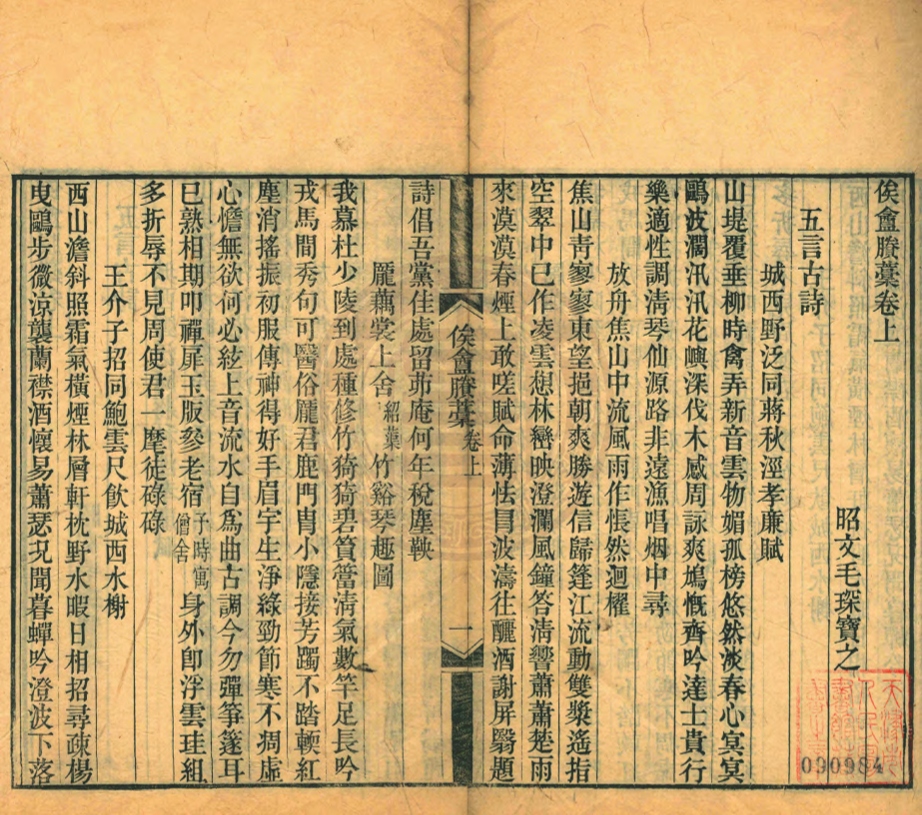 俟盦賸稾卷上
昭文毛琛寶之
五言古詩
城西野泛同蔣秋涇孝廉賦
山堤覆垂柳時禽弄新音雲物媚孤榜悠然淡春心冥冥
鷗波濶汎汎花嶼深伐木感周詠爽鳩慨齊吟達士貴行
樂適性調淸琴仙源路非遠漁唱烟中尋
放舟焦山中流風雨作悵然迴櫂
焦山靑寥寥東望挹朝爽勝遊信歸篷江流動雙槳遙指
空翠中已作凌雲想林巒映澄瀾風鐘答淸響蕭蕭楚雨
來漠漠春煙上敢嗟賦命薄怯冒波濤往釃酒謝屏翳題
俟盦賸稾
卷上
一
詩倡吾黨佳處留茆庵何年稅塵鞅
龎藕裳上舍紹葉竹谿琴趣圖
我慕杜少陵到處種修竹猗猗碧篔簹淸氣數竿足長吟
戎馬間秀句可醫俗龎君鹿門冑小隱接芳躅不踏輭紅
塵消搖振初服傳神得好手眉宇生淨綠勁節寒不凋虛
心憺無欲何必絃上音流水自爲曲古調今勿彈箏篴耳
已熟相期叩禪扉玉版參老宿予時寓僧舍身外卽浮雲珪組
多折辱不見周使君一摩徒碌碌
王介子招同鮑雲尺飮城西水榭
西山澹斜照霜氣橫煙林層軒枕野水暇日相招尋疎楊
曳鷗步微涼襲蘭襟酒懷易蕭瑟況聞暮蟬吟澄波下落
090984